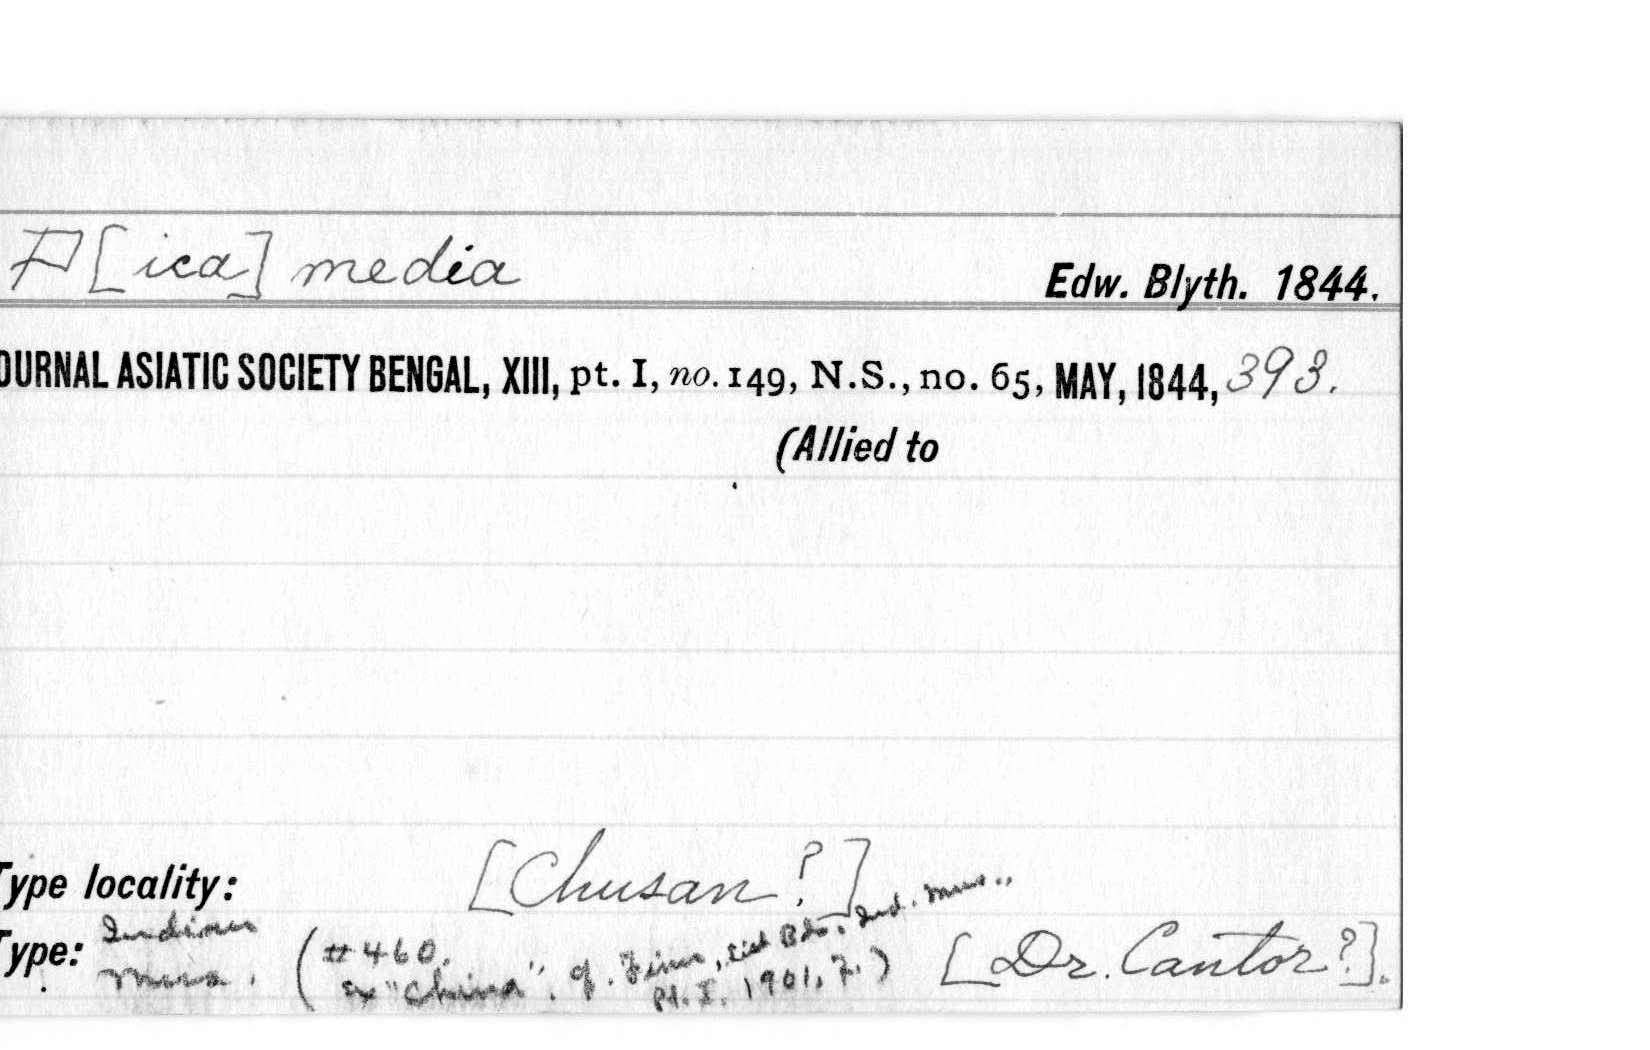 P[ica] media Edw. Blyth. 1844.
OURNAL ASIATIC SOCIETY BENGAL, XIII, pt. I, no. 149, N.S., no. 65, MAY, 1844, 393.
(Allied to
Type locality: [Chusan?]
Type: Indian Mus. (#460. ex "China", cf. Finn, List Bds. Ind. Mus., pt. I. 1901, 7.) [Dr. Cantor?].